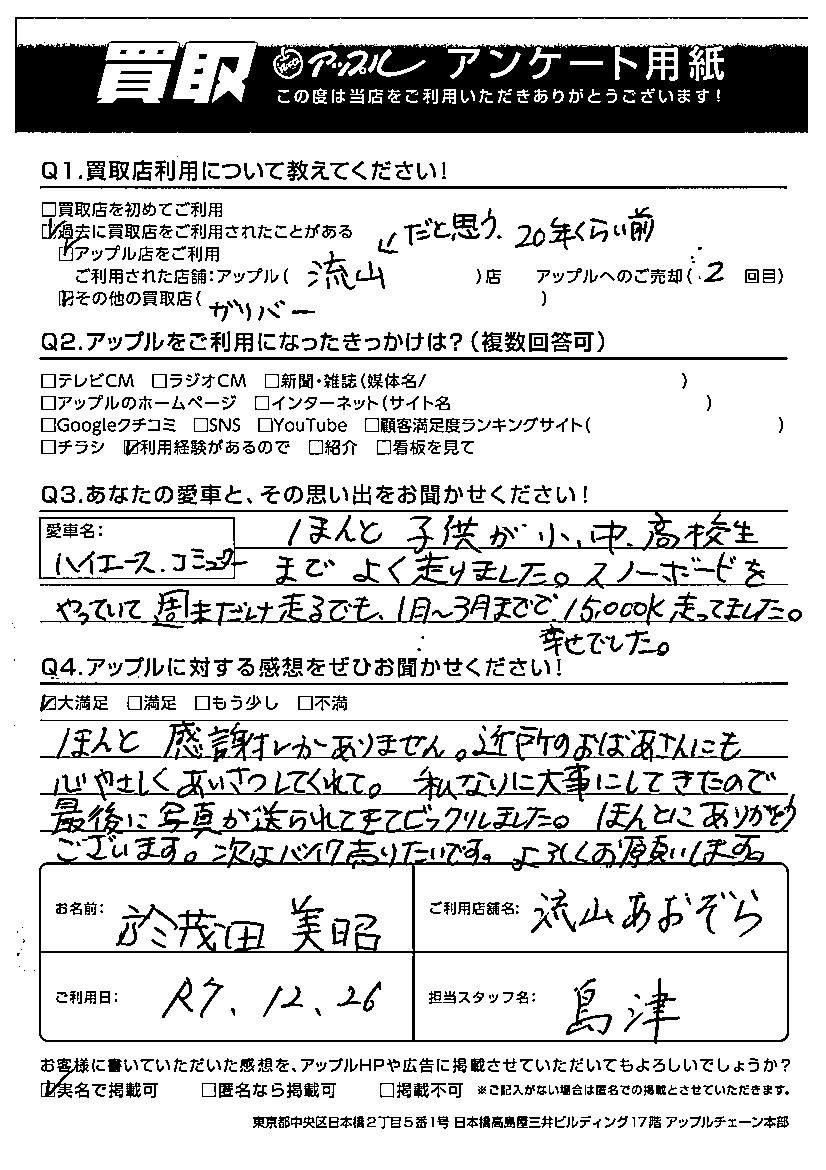 買取 アップル アンケート用紙
この度は当店をご利用いただきありがとうございます!
Q1.買取店利用について教えてください!
□買取店を初めてご利用
☑過去に買取店をご利用されたことがある
☑アップル店をご利用 ← だと思う、20年くらい前
ご利用された店舗:アップル( 流山 )店 アップルへのご売却( 2 回目)
☑その他の買取店( ガリバー )
Q2.アップルをご利用になったきっかけは?(複数回答可)
□テレビCM □ラジオCM □新聞・雑誌(媒体名/ )
□アップルのホームページ □インターネット(サイト名 )
□Googleクチコミ □SNS □YouTube □顧客満足度ランキングサイト( )
□チラシ ☑利用経験があるので □紹介 □看板を見て
Q3.あなたの愛車と、その思い出をお聞かせください!
愛車名:
ハイエース.コミューター
ほんと 子供が 小、中、高校生
まで よく走りました。スノーボードを
やっていて 週末だけ走るでも、1日~3月までで、15,000K走ってました。
幸せでした。
Q4.アップルに対する感想をぜひお聞かせください!
☑大満足 □満足 □もう少し □不満
ほんと 感謝しかありません。近所のおばあさんにも
心やさしくあいさつしてくれて。私なりに大事にしてきたので
最後に写真が送られてきてビックリしました。ほんとにありがとう
ございます。次はバイク売りたいです。よろしくお願いします。
お名前: 於茂田 美昭
ご利用店舗名: 流山あおぞら
ご利用日: R7.12.26
担当スタッフ名: 島津
お客様に書いていただいた感想を、アップルHPや広告に掲載させていただいてもよろしいでしょうか?
☑実名で掲載可 □匿名なら掲載可 □掲載不可 ※ご記入がない場合は匿名での掲載とさせていただきます。
東京都中央区日本橋2丁目5番1号 日本橋髙島屋三井ビルディング17階 アップルチェーン本部